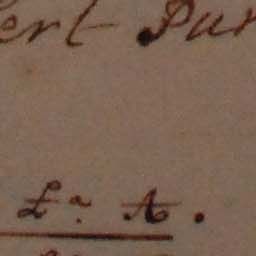 ert Pur
£.ª A.